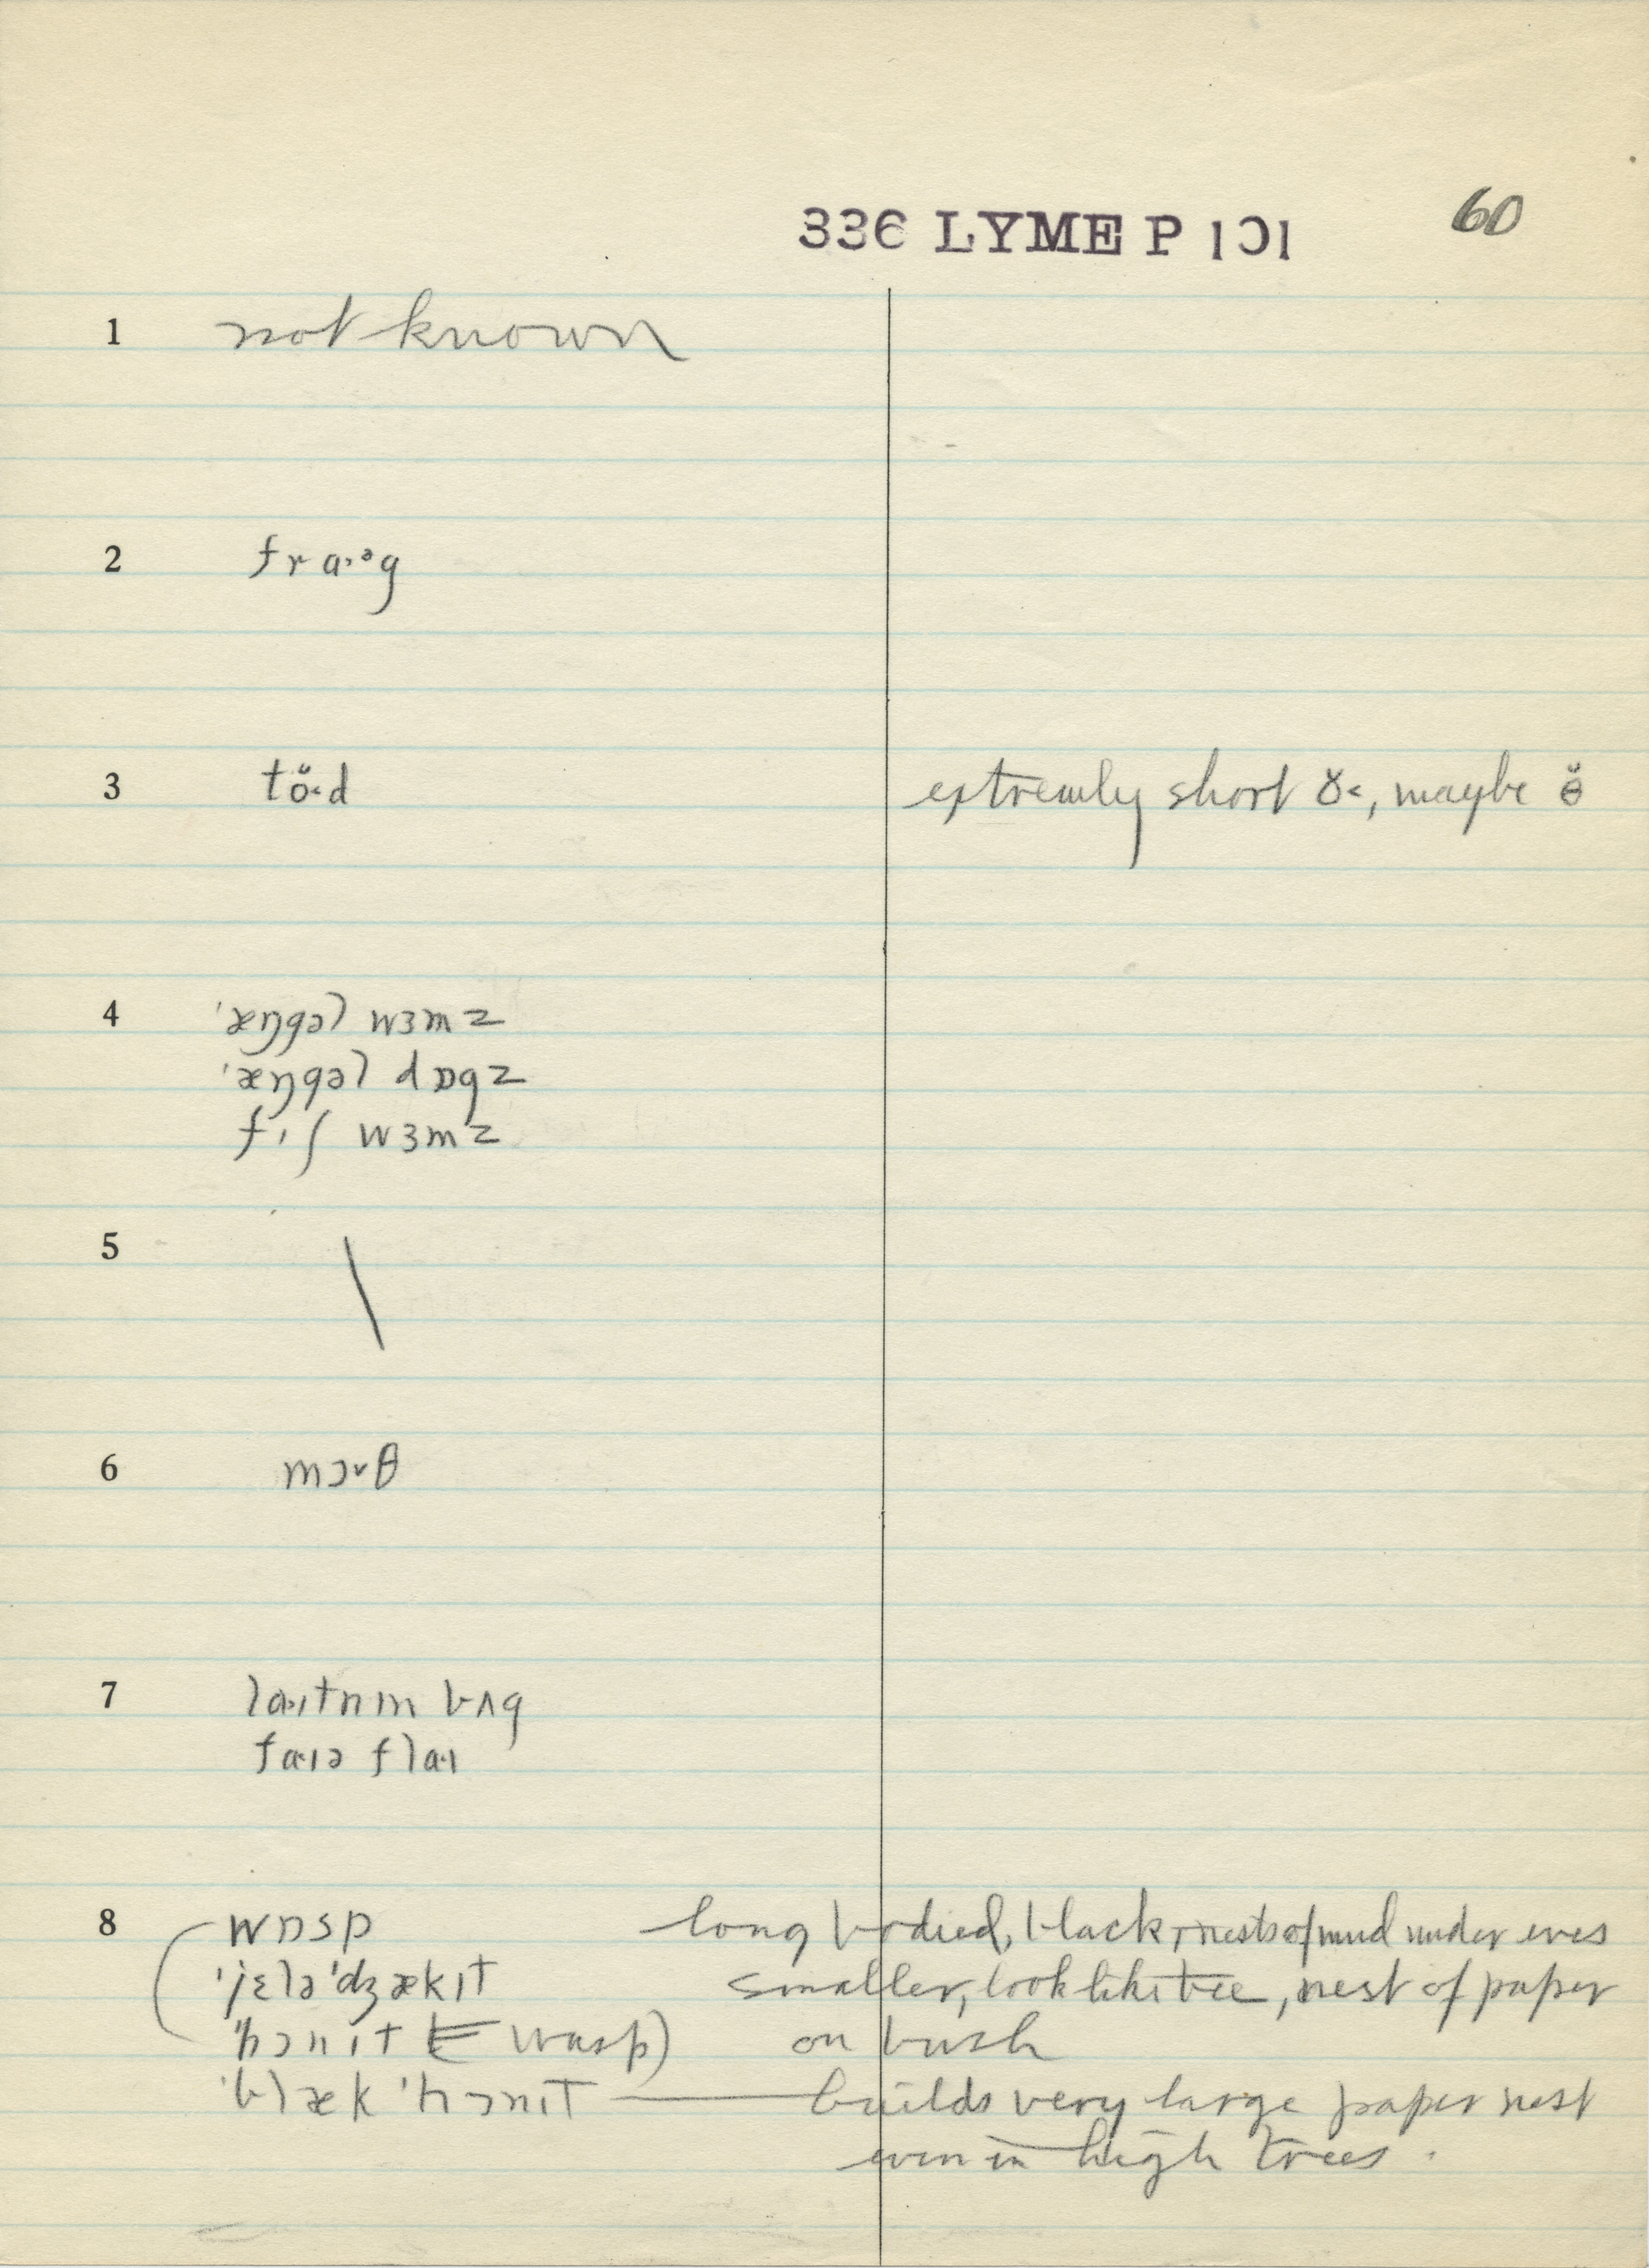 336 LYME P 101 60
1 not known
2 fra·ᵊg
3 tö̆·d extremly short ŏ<, maybe ɵ̆
4 'æŋgəl wɜmz
'æŋgəl dɒgz
fɪʃ wɜmz
5 \
6 mɔvθ
7 la·ɪtnɪn bʌg
fa·ɪə fla·ɪ
8 wɒsp long bodied, black, nests of mud under eves
'jɛlə 'dʒækɪt smaller, look like bee, nest of paper
'hɔnɪt (= wasp) on bush
'blæk 'hɔnɪt — builds very large paper nest
even in high trees.